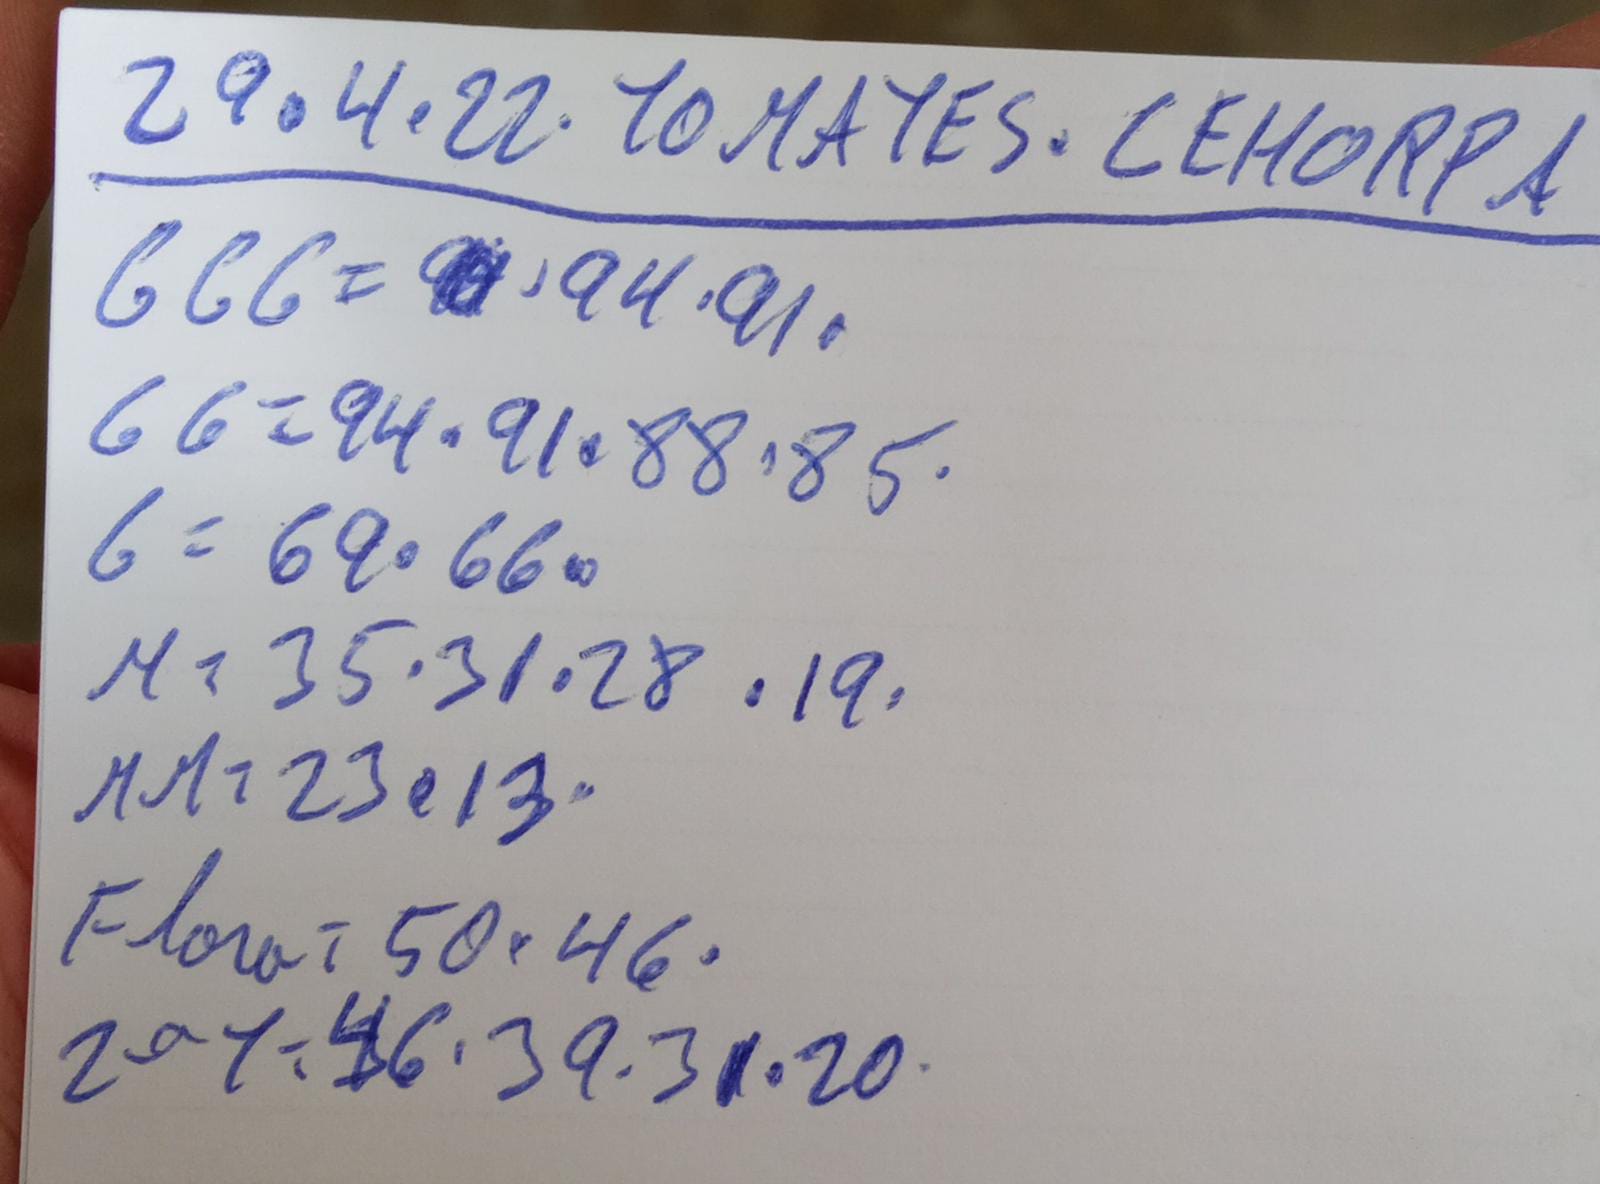 29.4.22. TOMATES. CEHORPA
GGG = . 94.91.
GG = 94.91.88.85.
G = 69.66.
M = 35.31.28 .19.
MM = 23.13.
Flora = 50.46.
2ª Y = 46.39.31.20.